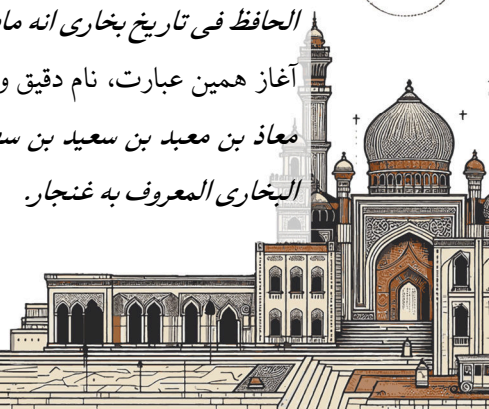 الحافظ فی تاریخ بخاری انه
آغاز همین عبارت، نام دقیق و
معاذ بن معبد بن سعید بن
البخاری المعروف به غنجار.